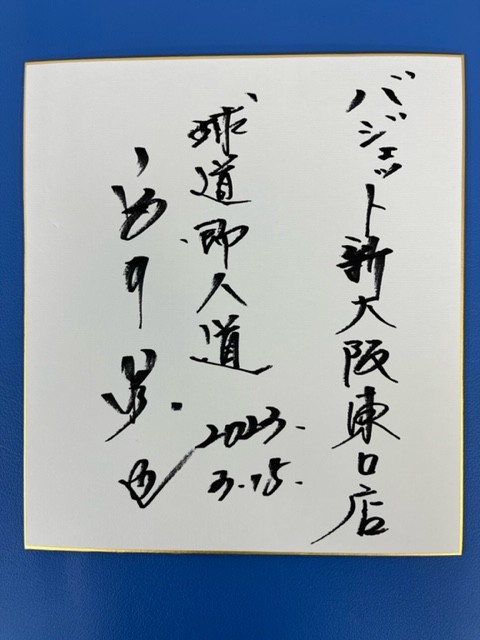 バジェット新大阪東口店
球道即人道
2023.
3.15.